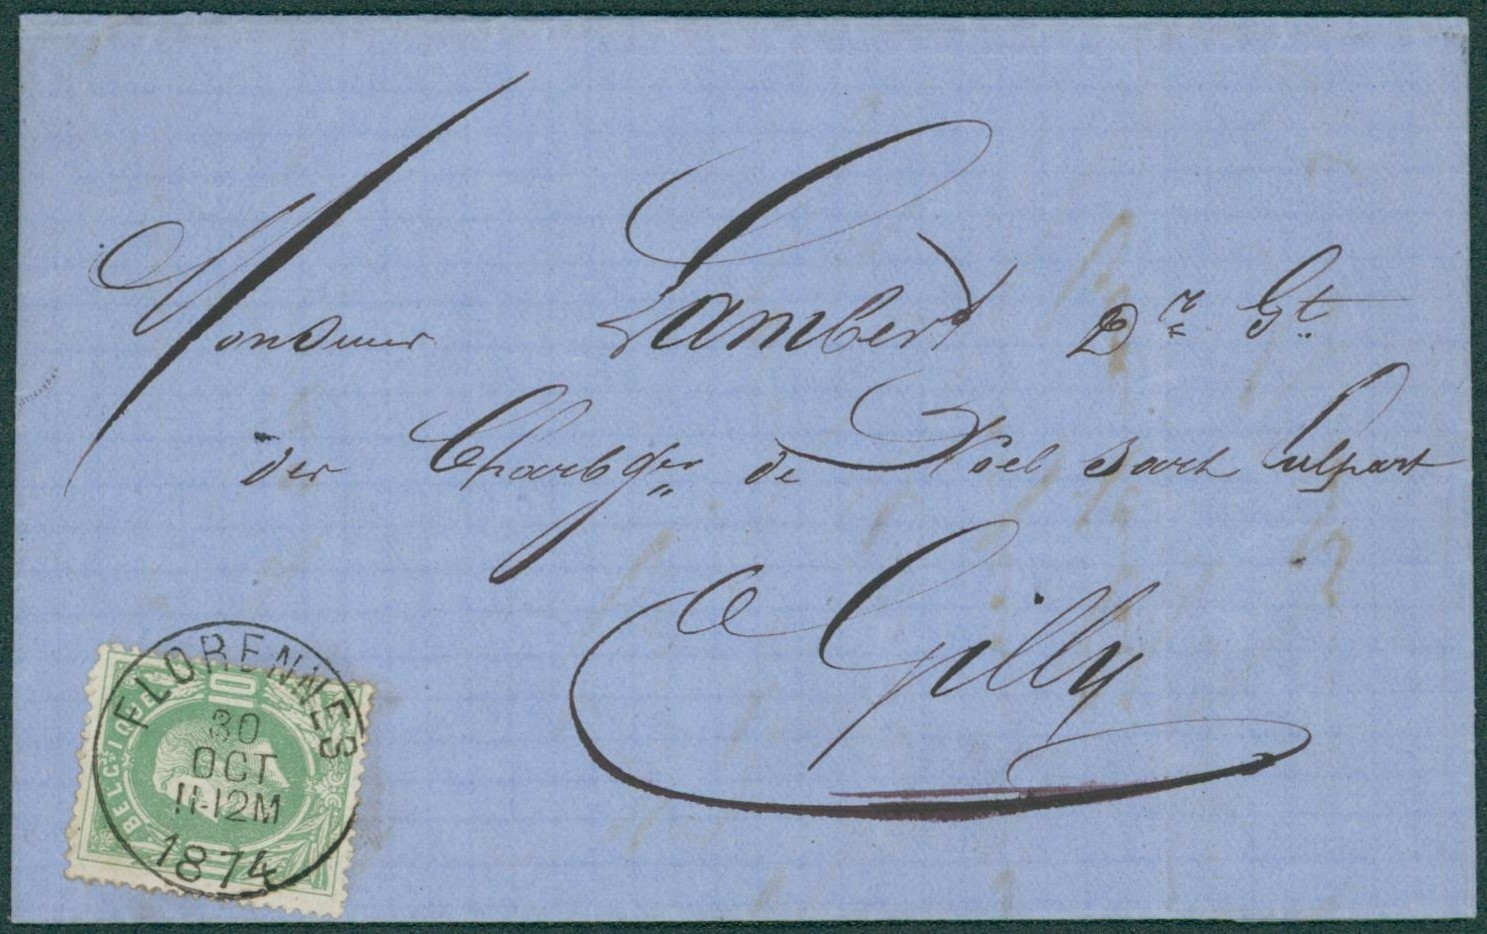 Monsieur Lambert Dr. Gt.
des Charbges de Noel Sart Culpart
a Gilly
FLORENNES
30
OCT
11-12M
1874
BELGIQUE
10